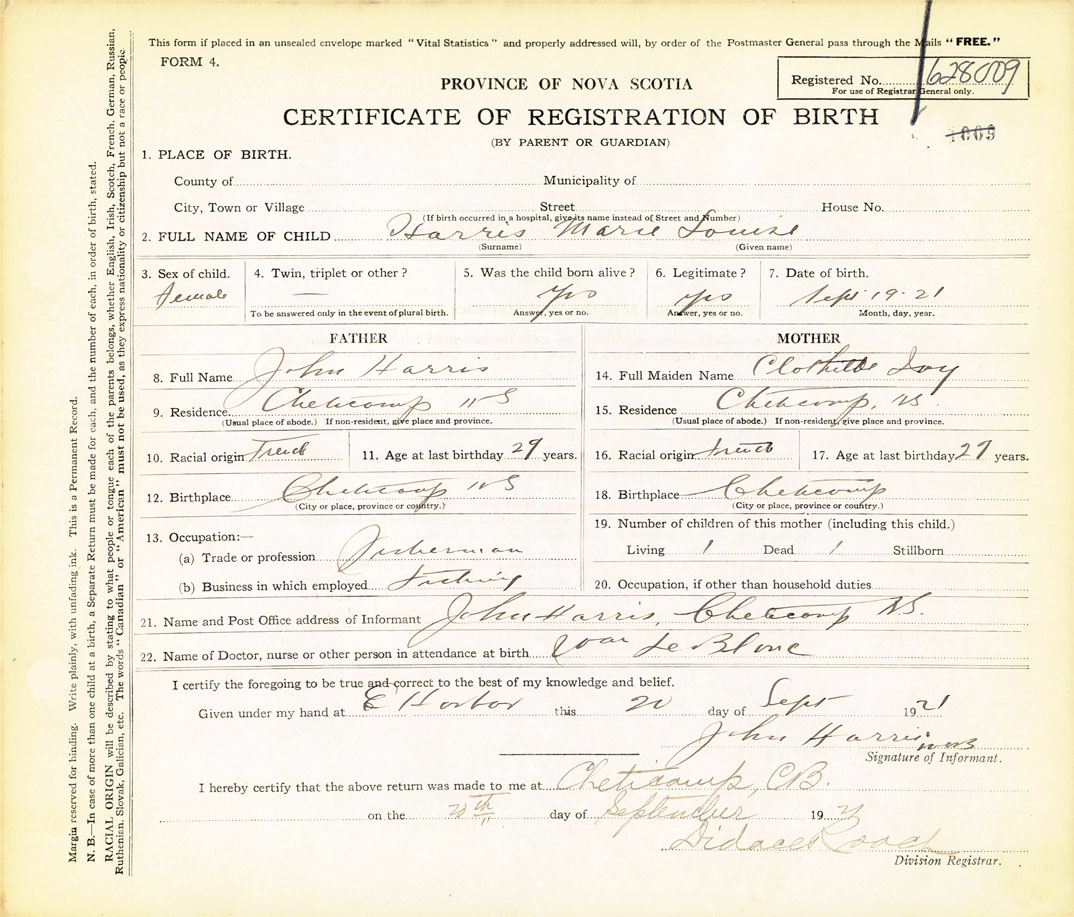 This form if placed in an unsealed envelope marked “Vital Statistics” and properly addressed will, by order of the Postmaster General pass through the Mails “FREE.”
FORM 4.
Registered No. 628009
For use of Registrar General only.
PROVINCE OF NOVA SCOTIA
CERTIFICATE OF REGISTRATION OF BIRTH
(BY PARENT OR GUARDIAN)
1. PLACE OF BIRTH.
County of Municipality of
City, Town or Village Street House No.
(If birth occurred in a hospital, give its name instead of Street and Number)
2. FULL NAME OF CHILD Harris Marie Louise
(Surname) (Given name)
3. Sex of child. 4. Twin, triplet or other? 5. Was the child born alive? 6. Legitimate? 7. Date of birth.
Female — yes yes Sept 19-21
To be answered only in the event of plural birth. Answer, yes or no. Answer, yes or no. Month, day, year.
FATHER MOTHER
8. Full Name John Harris 14. Full Maiden Name Clothilde
9. Residence Cheticamp NS 15. Residence Cheticamp, NS
(Usual place of abode.) If non-resident, give place and province. (Usual place of abode.) If non-resident, give place and province.
10. Racial origin French 11. Age at last birthday 29 years. 16. Racial origin French 17. Age at last birthday 27 years.
12. Birthplace Cheticamp NS 18. Birthplace Cheticamp
(City or place, province or country.) (City or place, province or country.)
13. Occupation:— 19. Number of children of this mother (including this child.)
(a) Trade or profession Fisherman Living 1 Dead 1 Stillborn
(b) Business in which employed Fishing 20. Occupation, if other than household duties
21. Name and Post Office address of Informant John Harris, Cheticamp NS.
22. Name of Doctor, nurse or other person in attendance at birth Le Blanc
I certify the foregoing to be true and correct to the best of my knowledge and belief.
Given under my hand at E Harbor this 20 day of Sept 1921
John Harris
Signature of Informant.
I hereby certify that the above return was made to me at Cheticamp, C.B.
on the day of September 192
Didace Roach
Division Registrar.
Margin reserved for binding. Write plainly, with unfading ink. This is a Permanent Record.
N. B.—In case of more than one child at a birth, a Separate Return must be made for each, and the number of each, in order of birth, stated.
RACIAL ORIGIN will be described by stating to what people or tongue each of the parents belongs, whether English, Irish, Scotch, French, German, Russian,
Ruthenian, Slovak, Galician, etc. The words “Canadian” or “American” must not be used, as they express nationality or citizenship but not a race or people